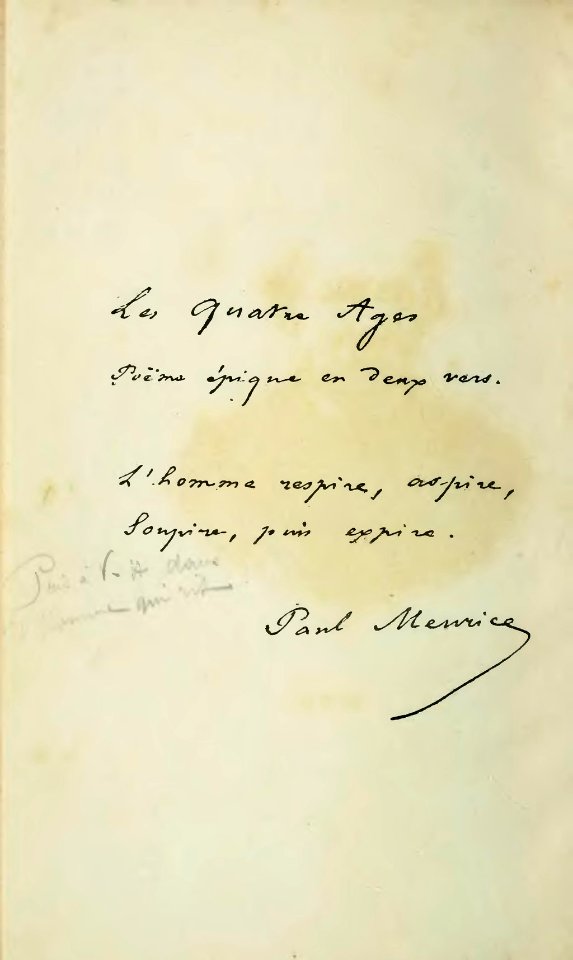 Les Quatre Ages
Poëme épique en deux vers.
L'homme respire, aspire,
Soupire, puis expire.
à V. H dans
qui rit
Paul Meurice